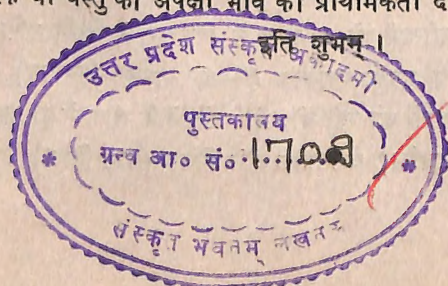 वस्तु की अपेक्षा भाव को प्राथमिकता
इति शुभम् ।
उत्तर प्रदेश संस्कृत अकादमी
पुस्तकालय
ग्रन्थ आ० सं०
संस्कृत भवनम् लखनऊ